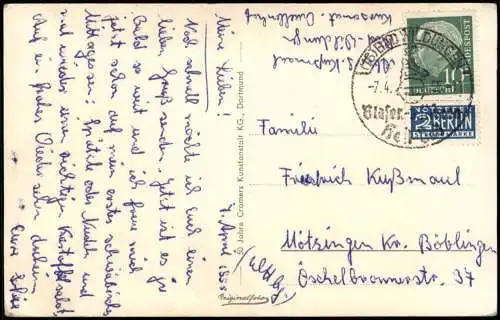 Meine Lieben!
Noch schnell möchte ich Euch einen
lieben Gruß senden. Jetzt ist es ja
Bald so weit und ich freue mich
jetzt schon auf mein erstes schwäbisches
Mittagessen: Spätzle oder Nudeln und
mal wieder einen richtigen Kartoffelsalat.
Auf ein frohes Wiedersehn daheim
Eure
7. April 1955
Kuranst. Quellenhof
50 Jahre Cramers Kunstanstalt KG., Dortmund
Originalfoto
BAD WILDUNGEN
-7.4.
Blasen-
DEUTSCHE BUNDESPOST
10
NOTOPFER
2 BERLIN
STEUERMARKE
Familie
Friedrich Kußmaul
Mötzingen Kr. Böblingen
Öschelbronnerstr. 37